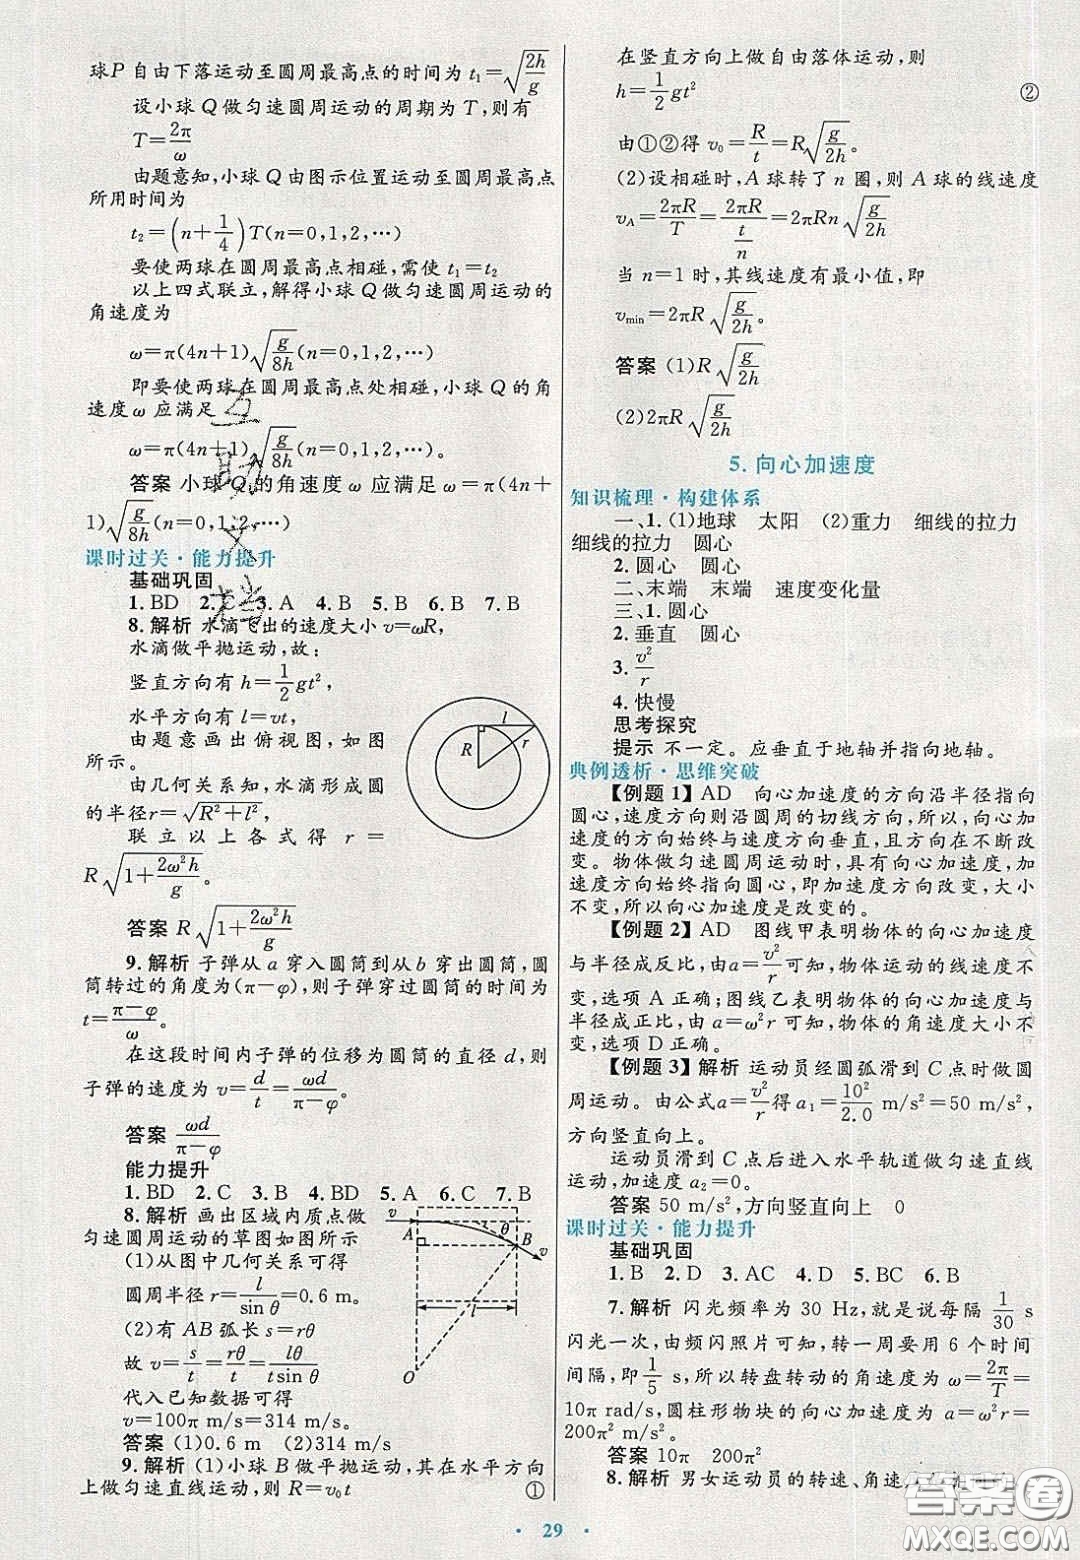 球P自由下落运动至圆周最高点的时间为t₁=√(2h/g)
设小球Q做匀速圆周运动的周期为T,则有
T=2π/ω
由题意知,小球Q由图示位置运动至圆周最高点
所用时间为
t₂=(n+1/4)T(n=0,1,2,…)
要使两球在圆周最高点相碰,需使t₁=t₂
以上四式联立,解得小球Q做匀速圆周运动的
角速度为
ω=π(4n+1)√(g/8h)(n=0,1,2,…)
即要使两球在圆周最高点处相碰,小球Q的角
速度ω应满足
ω=π(4n+1)√(g/8h)(n=0,1,2,…)。
答案 小球Q的角速度ω应满足ω=π(4n+
1)√(g/8h)(n=0,1,2,…)
课时过关·能力提升
基础巩固
1. BD 2. C 3. A 4. B 5. B 6. B 7. B
8. 解析 水滴飞出的速度大小v=ωR,
水滴做平抛运动,故:
竖直方向有h=1/2gt²,
水平方向有l=vt,
由题意画出俯视图,如图
所示。
由几何关系知,水滴形成圆
的半径r=√(R²+l²),
联立以上各式得r=
R√(1+2ω²h/g)。
答案 R√(1+2ω²h/g)
R l r
9. 解析 子弹从a穿入圆筒到从b穿出圆筒,圆
筒转过的角度为(π-φ),则子弹穿过圆筒的时间为
t=(π-φ)/ω。
在这段时间内子弹的位移为圆筒的直径d,则
子弹的速度为v=d/t=ωd/(π-φ)。
答案 ωd/(π-φ)
能力提升
1. BD 2. C 3. B 4. BD 5. A 6. C 7. B
8. 解析 画出区域内质点做
匀速圆周运动的草图如图所示
(1)从图中几何关系可得
圆周半径r=l/sin θ=0.6 m。
(2)有AB弧长s=rθ
故v=s/t=rθ/t=lθ/(tsin θ)
代入已知数据可得
v=100π m/s=314 m/s。
答案 (1)0.6 m (2)314 m/s
v A θ B v l O
9. 解析 (1)小球B做平抛运动,其在水平方向
上做匀速直线运动,则R=v₀t ①
在竖直方向上做自由落体运动,则
h=1/2gt² ②
由①②得v₀=R/t=R√(g/2h)。
(2)设相碰时,A球转了n圈,则A球的线速度
v_A=2πR/T=2πR/(t/n)=2πRn√(g/2h)
当n=1时,其线速度有最小值,即
v_min=2πR√(g/2h)。
答案 (1)R√(g/2h)
(2)2πR√(g/2h)
5. 向心加速度
知识梳理·构建体系
一、1. (1)地球 太阳 (2)重力 细线的拉力
细线的拉力 圆心
2. 圆心 圆心
二、末端 末端 速度变化量
三、1. 圆心
2. 垂直 圆心
3. v²/r
4. 快慢
思考探究
提示 不一定。应垂直于地轴并指向地轴。
典例透析·思维突破
【例题1】AD 向心加速度的方向沿半径指向
圆心,速度方向则沿圆周的切线方向,所以,向心加
速度的方向始终与速度方向垂直,且方向在不断改
变。物体做匀速圆周运动时,具有向心加速度,加
速度方向始终指向圆心,即加速度方向改变,大小
不变,所以向心加速度是改变的。
【例题2】AD 图线甲表明物体的向心加速度
与半径成反比,由a=v²/r可知,物体运动的线速度不
变,选项A正确;图线乙表明物体的向心加速度与
半径成正比,由a=ω²r可知,物体的角速度大小不
变,选项D正确。
【例题3】解析 运动员经圆弧滑到C点时做圆
周运动。由公式a=v²/r得a₁=10²/2.0 m/s²=50 m/s²,
方向竖直向上。
运动员滑到C点后进入水平轨道做匀速直线
运动,加速度a₂=0。
答案 50 m/s²,方向竖直向上 0
课时过关·能力提升
基础巩固
1. B 2. D 3. AC 4. D 5. BC 6. B
7. 解析 闪光频率为30 Hz,就是说每隔1/30 s
闪光一次,由频闪照片可知,转一周要用6个时间
间隔,即1/5 s,所以转盘转动的角速度为ω=2π/T=
10π rad/s,圆柱形物块的向心加速度为a=ω²r=
200π² m/s²。
答案 10π 200π²
8. 解析 男女运动员的转速、角速
29
互助文档
答案圈
MXQE.COM